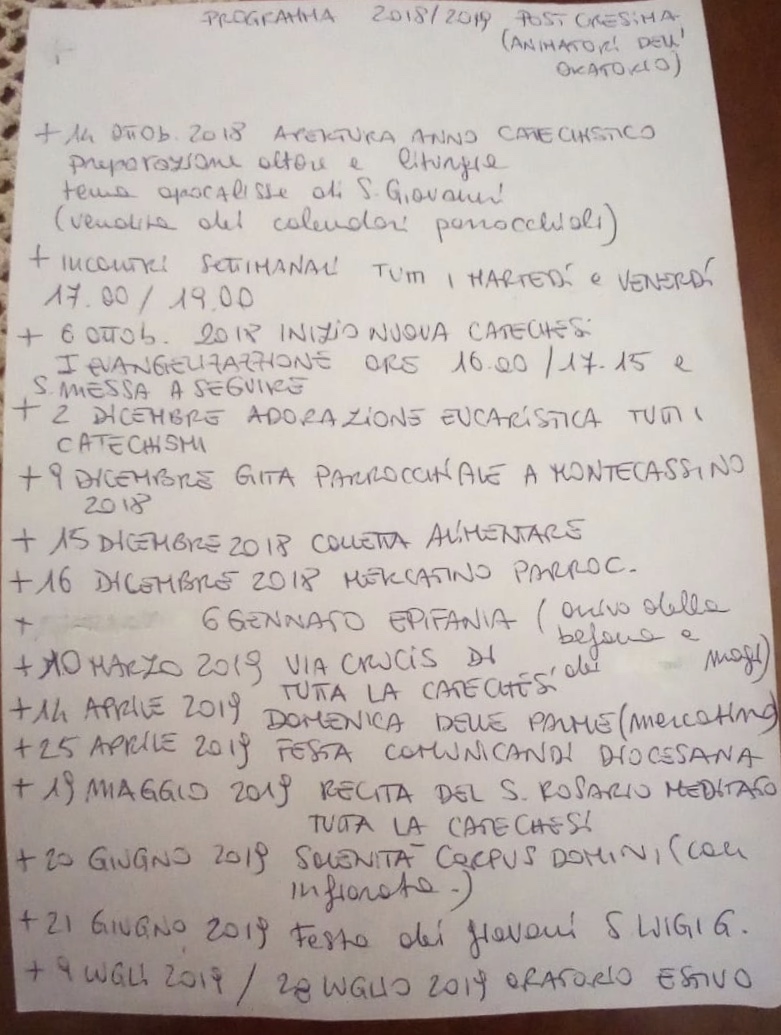 PROGRAMMA 2018/2019 POST CRESIMA
(ANIMATORI DELL'
ORATORIO)
+ 14 OTTOB. 2018 APERTURA ANNO CATECHISTICO
preparazione altare e liturgia
tema apocalisse di S. Giovanni
(vendita dei calendari parrocchiali)
+ INCONTRI SETTIMANALI TUTTI I MARTEDÍ e VENERDÍ
17.00 / 19.00
+ 6 OTTOB. 2018 INIZIO NUOVA CATECHESI
I EVANGELIZAZZIONE ORE 16.00 / 17.15 e
S. MESSA A SEGUIRE
+ 2 DICEMBRE ADORAZIONE EUCARISTICA TUTTI I
CATECHISMI
+ 9 DICEMBRE GITA PARROCCHIALE A MONTECASSINO
2018
+ 15 DICEMBRE 2018 COLLETTA ALIMENTARE
+ 16 DICEMBRE 2018 MERCATINO PARROC.
+ 6 GENNAIO EPIFANIA (arrivo della
befana e
dei magi)
+ 10 MARZO 2019 VIA CRUCIS DI
TUTTA LA CATECHESI
+ 14 APRILE 2019 DOMENICA DELLE PALME (mercatino)
+ 25 APRILE 2019 FESTA COMUNICANDI DIOCESANA
+ 19 MAGGIO 2019 RECITA DEL S. ROSARIO MEDITATO
TUTTA LA CATECHESI
+ 20 GIUGNO 2019 SOLENITA' CORPUS DOMINI (con
infiorata.)
+ 21 GIUGNO 2019 Festa dei giovani S LUIGI G.
+ 9 LUGLI 2019 / 28 LUGLIO 2019 ORATORIO ESTIVO